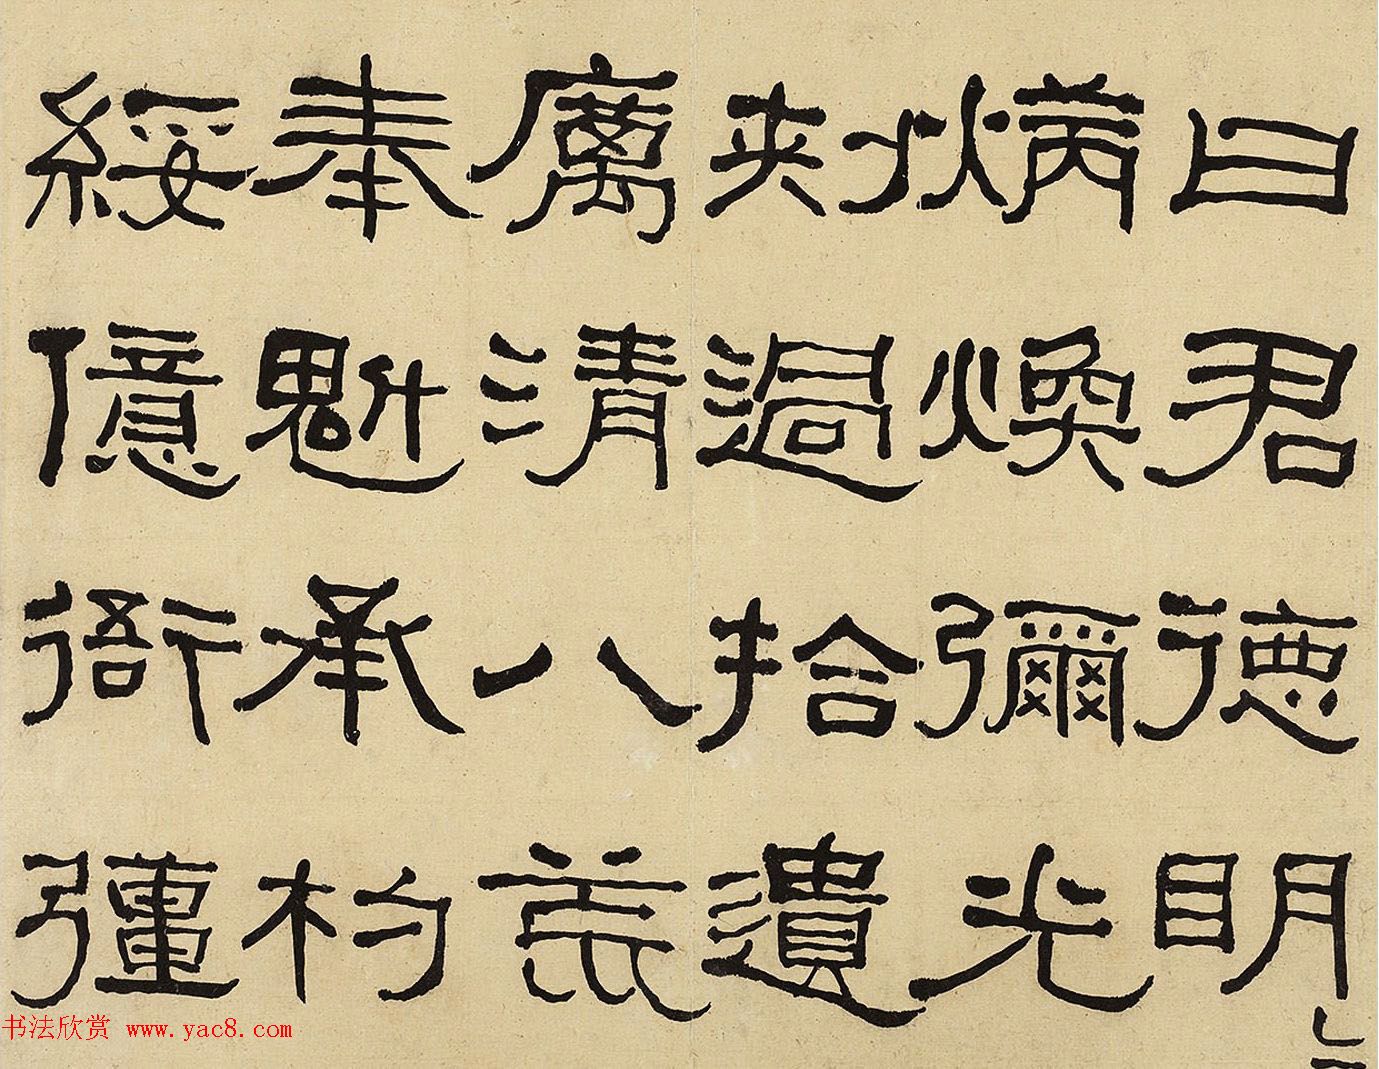 曰君德明
炳煥彌光
刺過拾遺
厲清八荒
奉魁承杓
綏億衙彊
书法欣赏 www.yac8.com